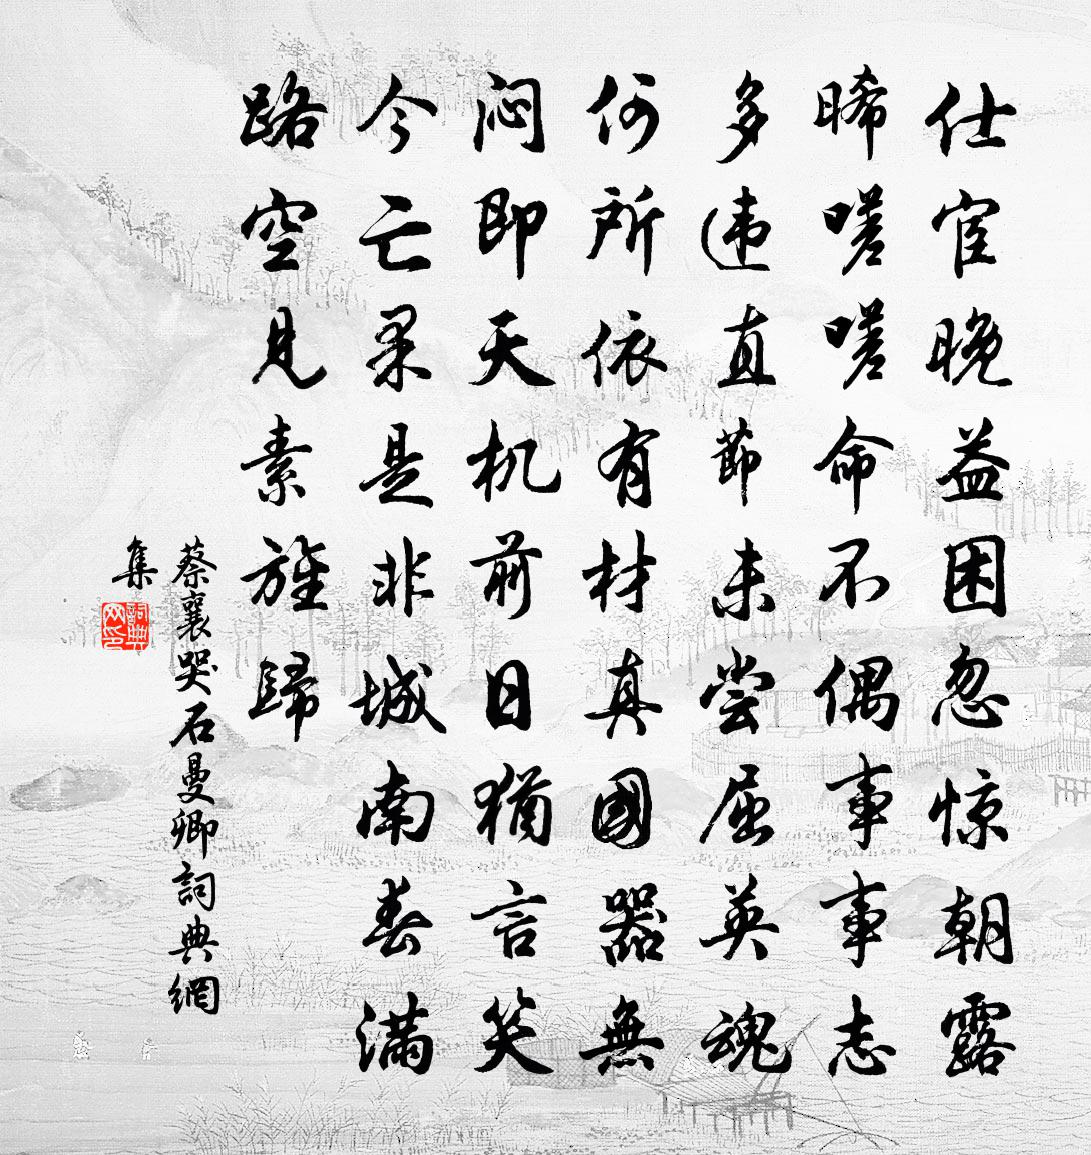 仕宦晚益困忽惊朝露
晞嗟嗟命不偶事事志
多违直節未尝屈英魂
何所依有材真國器無
闷即天机前日犹言笑
今亡果是非城南春满
路空見素旌歸
蔡襄哭石曼卿詞典網
集
詞典网印